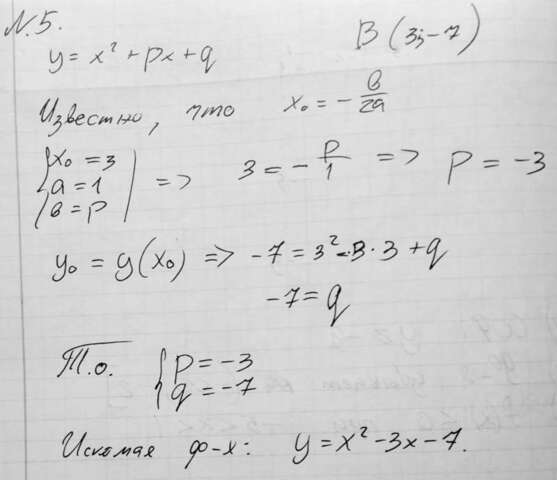 N.5.
y = x² + px + q    B (3; -7)
Известно, что x₀ = - в/2a
{ x₀ = 3
a = 1
в = p | => 3 = - p/1 => p = -3
y₀ = y(x₀) => -7 = 3² - 3 · 3 + q
-7 = q
Т.о. { p = -3
q = -7
Искомая ф-я: y = x² - 3x - 7.